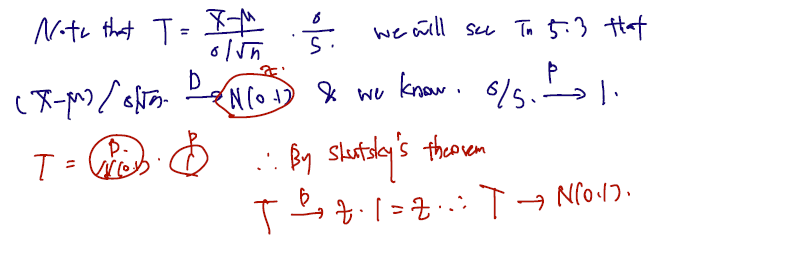 Note that T = (X̄-μ)/(σ/√n) · σ/S. we will see in 5.3 that
(X̄-μ)/σ/√n. →D N(0,1) z. & we know. σ/S. →P 1.
T = D. N(0,1) · P 1 ∴ By Slutsky's theorem
T →D z·1 = z ∴ T → N(0,1).